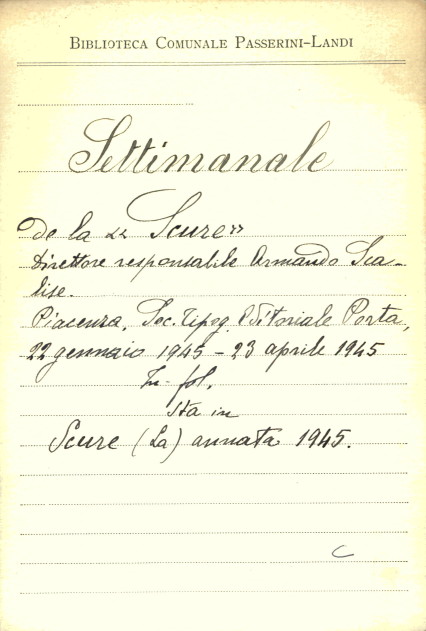 BIBLIOTECA COMUNALE PASSERINI-LANDI
Settimanale
De la « Scure »
Direttore responsabile Armando Sca-
lise.
Piacenza, Soc. Tipog. Editoriale Porta,
22 gennaio 1945 - 23 aprile 1945
In-fol.
Sta in
Scure (La) annata 1945.
C